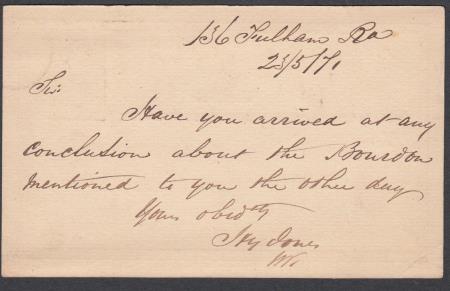 136 Fulham Rd
23/5/71
Sir
Have you arrived at any
conclusion about the Bourdon
mentioned to you the other day
Yours obidtly
Jones